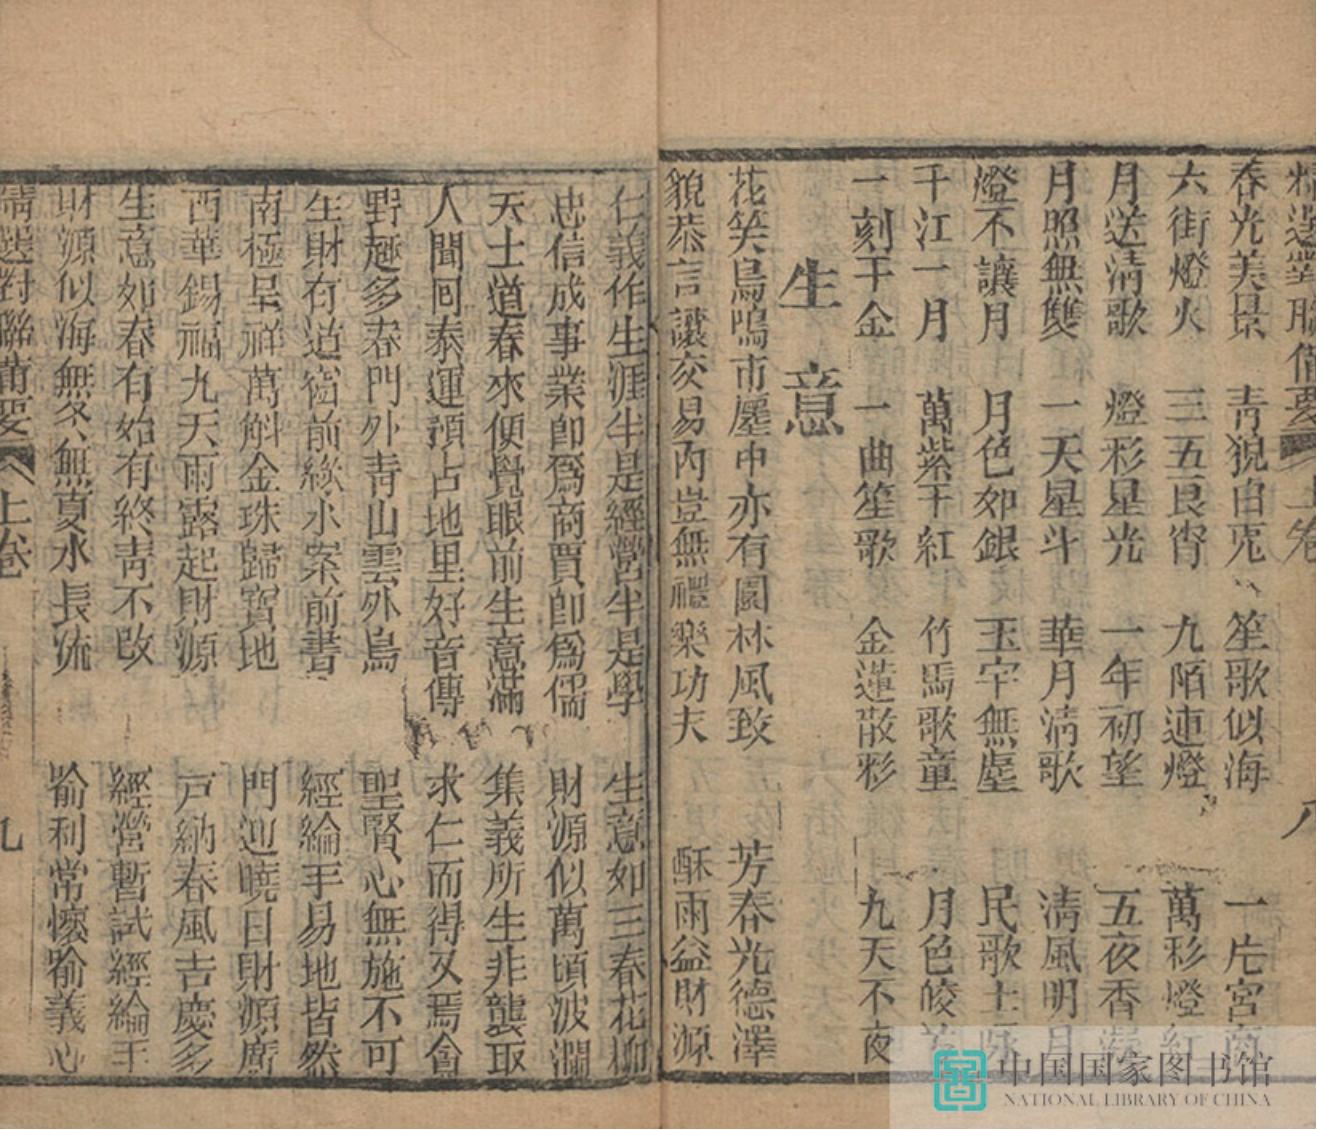 精選對聯備要 上卷 八
春光美景 青猊白兎 笙歌似海 一片宮商
六街燈火 三五良宵 九陌連燈 萬彩燈紅
月送清歌 燈彩星光 一年初望 五夜香凝
月照無雙 一天星斗 華月清歌 清風明月
燈不讓月 月色如銀 玉宇無塵 民歌士詠
千江一月 萬紫千紅 竹馬歌童 月色皎
一刻千金 一曲笙歌 金蓮散彩 九天不夜
生意
花笑鳥鳴市廛中亦有園林風致 芳春光德澤
貌恭言讓交易內豈無禮樂功夫 酥雨益財源
仁義作生涯半是經營半是學 生意如三春花柳
忠信成事業卽爲商賈卽爲儒 財源似萬頃波瀾
天上道春來便覺眼前生意滿 集義所生非襲取
人間回泰運預占地里好音傳 求仁而得又焉貪
野趣多春門外青山雲外鳥 聖賢心無施不可
生財有道窗前綠水案前書 經綸手易地皆然
南極呈祥萬斛金珠歸寶地 門迎曉日財源廣
西華錫福九天雨露起財源 戸納春風吉慶多
生意如春有始有終靑不改 經營暫試經綸手
財源似海無冬無夏水長流 喻利常懷喻義心
精選對聯備要 上卷 九
中国国家图书馆
NATIONAL LIBRARY OF CHINA